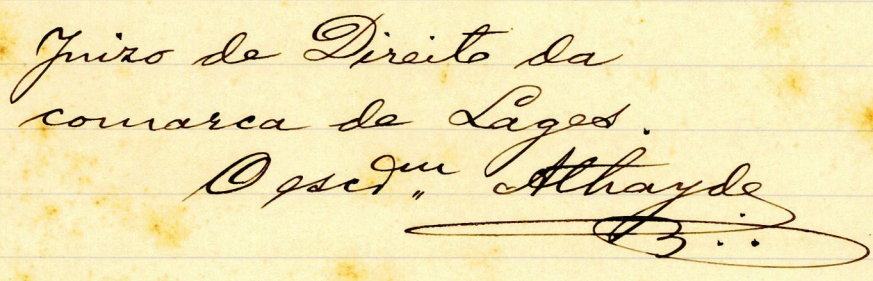 Juizo de Direito da
comarca de Lages.
O escr.m Athayde